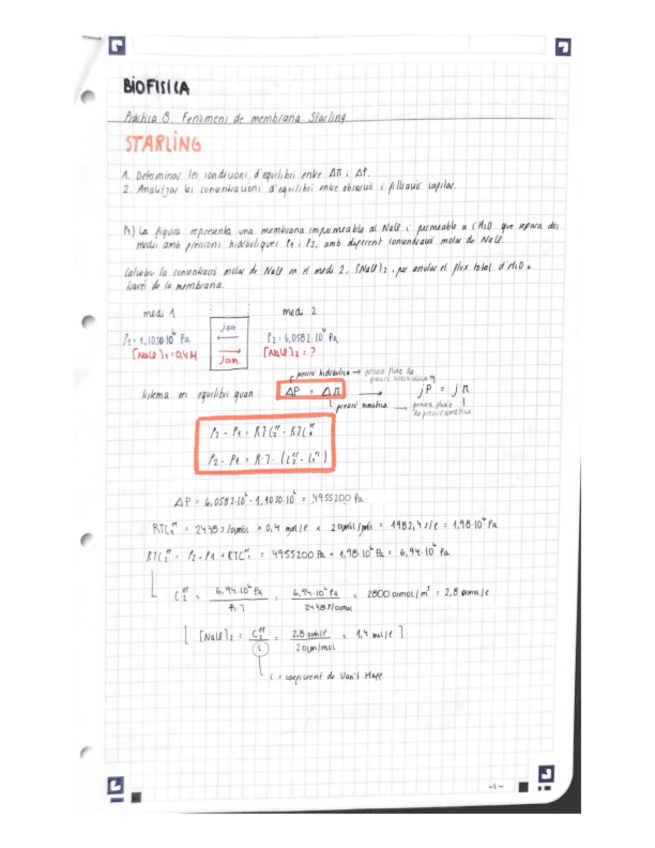 BIOFISICA
Pràctica 8. Fenòmens de membrana. Starling
STARLING
1. Determinar les condicions d'equilibri entre Δπ i ΔP.
2. Analitzar les concentracions d'equilibri entre absorció i filtració capilar.
P1) La figura representa una membrana impermeable al NaCl i permeable a l'H2O que separa dos
medis amb pressions hidràuliques P1 i P2, amb diferent concentració molar de NaCl.
Calculeu la concentració molar de NaCl en el medi 2, [NaCl]2, per anular el flux total d'H2O a
través de la membrana.
medi 1 medi 2
P1 = 1,1030·10⁶ Pa P2 = 6,0582·10⁶ Pa
[NaCl]1 = 0,4M [NaCl]2 = ?
pressió hidràulica → genera fluxe de
pressió hidràulica
Sistema en equilibri quan: ΔP = Δπ → jP = jπ
pressió osmòtica → genera fluxe
de pressió osmòtica
P2 - P1 = RTC2 - RTC1
P2 - P1 = R·T·(C2 - C1)
ΔP = 6,0582·10⁶ - 1,1030·10⁶ = 4955200 Pa
= 2478 J/osmol × 0,4 mol/l × 2 osmol/mol = 1982,4 J/l = 1,98·10⁶ Pa
= P2 - P1 + RTC1 = 4955200 Pa + 1,98·10⁶ Pa = 6,94·10⁶ Pa
C2 = 6,94·10⁶ Pa / R·T = 6,94·10⁶ Pa / 2478 J/osmol = 2800 osmol/m³ = 2,8 osmol/l
[ [NaCl]2 = C2 / i = 2,8 osm/l / 2 osm/mol = 1,4 mol/l ]
i = coeficient de Van't Hoff
-1-